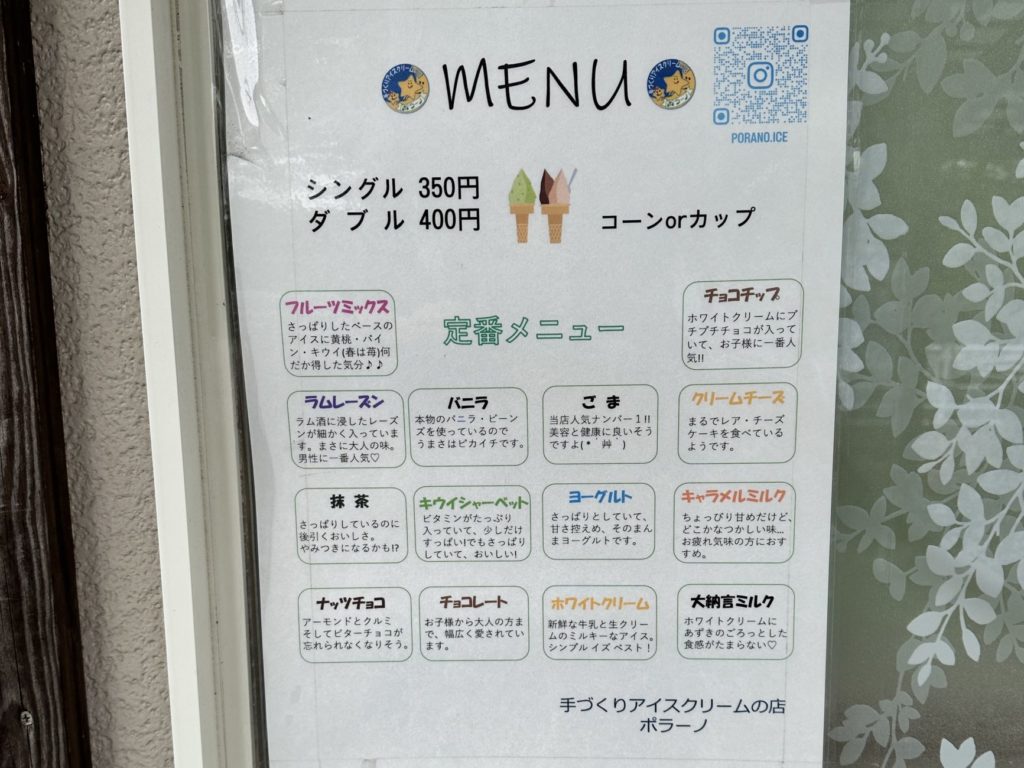 MENU
PORANO.ICE
シングル 350円
ダブル 400円
コーンorカップ
定番メニュー
フルーツミックス
さっぱりしたベースの
アイスに黄桃・パイ
ン・キウイ(春は苺)何
だか得した気分♪♪
チョコチップ
ホワイトクリームにプ
チプチチョコが入って
いて、お子様に一番人
気!!
ラムレーズン
ラム酒に浸したレーズ
ンが細かく入っていま
す。まさに大人の味。
男性に一番人気♡
バニラ
本物のバニラ・ビーン
ズを使っているので
うまさはピカイチです。
ごま
当店人気ナンバー１!!
美容と健康に良いそう
ですよ(*゜艸゜)
クリームチーズ
まるでレア・チーズ
ケーキを食べている
ようです。
抹茶
さっぱりしているのに
後引くおいしさ。
やみつきになるかも!?
キウイシャーベット
ビタミンがたっぷり
入っていて、少しだけ
すっぱい!でもさっぱり
していて、おいしい!
ヨーグルト
さっぱりとしていて、
甘さ控えめ、そのまん
まヨーグルトです。
キャラメルミルク
ちょっぴり甘めだけど、
どこかなつかしい味…
お疲れ気味の方におす
すめ。
ナッツチョコ
アーモンドとクルミ
そしてビターチョコが
忘れられなくなりそう。
チョコレート
お子様から大人の方ま
で、幅広く愛されてい
ます。
ホワイトクリーム
新鮮な牛乳と生クリー
ムのミルキーなアイス。
シンプル イズ ベスト！
大納言ミルク
ホワイトクリームに
あずきのごろっとした
食感がたまらない♡
手づくりアイスクリームの店
ポラーノ